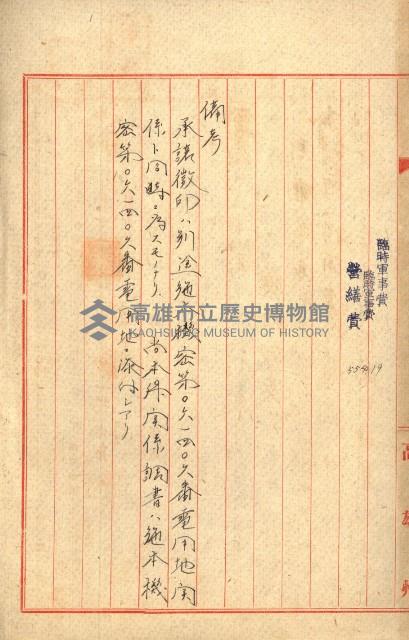 臨時軍事費
臨時軍事費
營繕費
55419
備考
承諾徴印ハ別途海機密第〇六一四〇六番電用地関
係ト同時ニ為スモノナリ 尚本件関係調書ハ海本機
密第〇六一四〇六番電用地ニ添付シアリ
高雄市立歷史博物館
KAOHSIUNG MUSEUM OF HISTORY
高雄